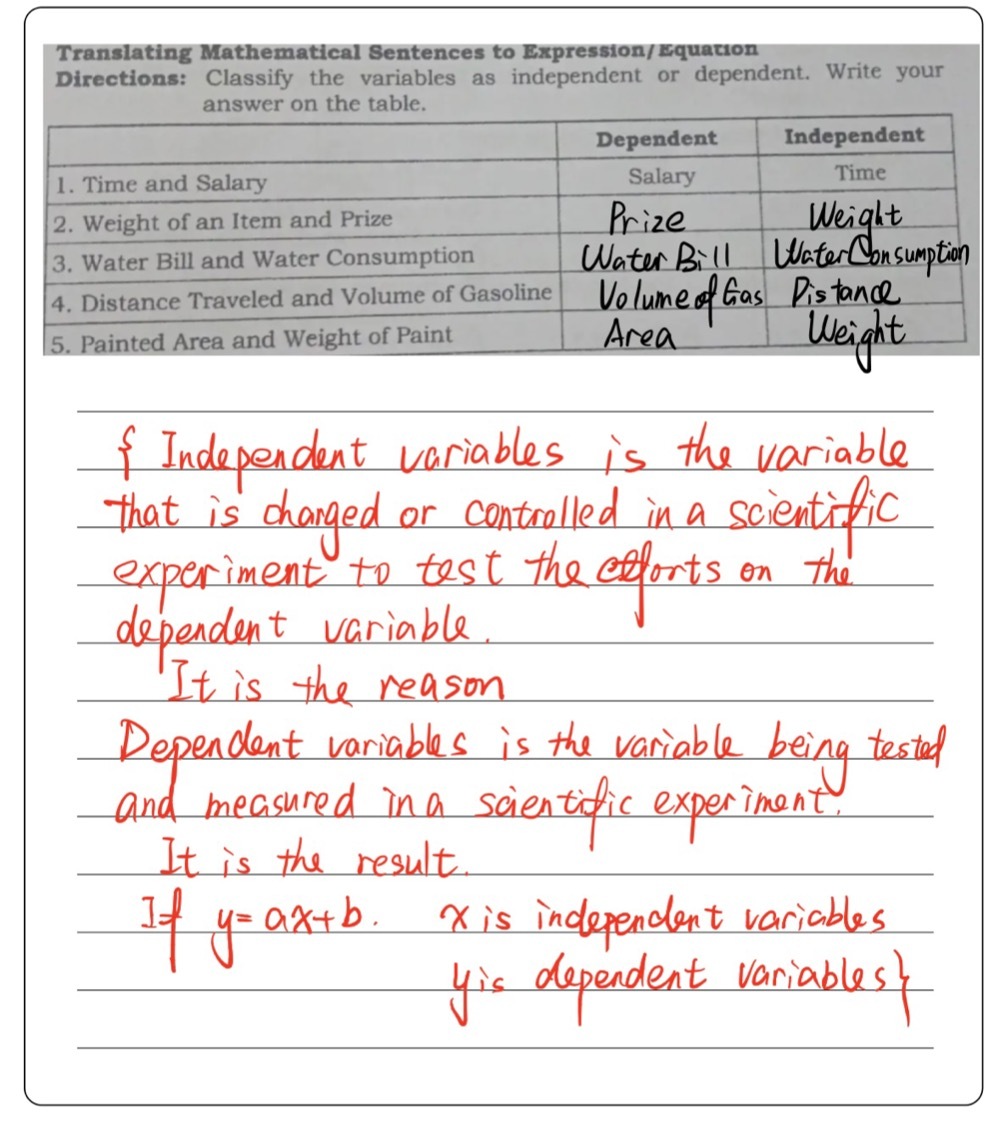 Translating Mathematical Sentences to Expression/Equation
Directions: Classify the variables as independent or dependent. Write your
answer on the table.
Dependent Independent
1. Time and Salary Salary Time
2. Weight of an Item and Prize Prize Weight
3. Water Bill and Water Consumption Water Bill Water Consumption
4. Distance Traveled and Volume of Gasoline Volume of Gas Distance
5. Painted Area and Weight of Paint Area Weight
{ Independent variables is the variable
that is changed or controlled in a scientific
experiment to test the efforts on the
dependent variable.
It is the reason
Dependent variables is the variable being tested
and measured in a scientific experiment.
It is the result.
If y=ax+b. x is independent variables
y is dependent variables}